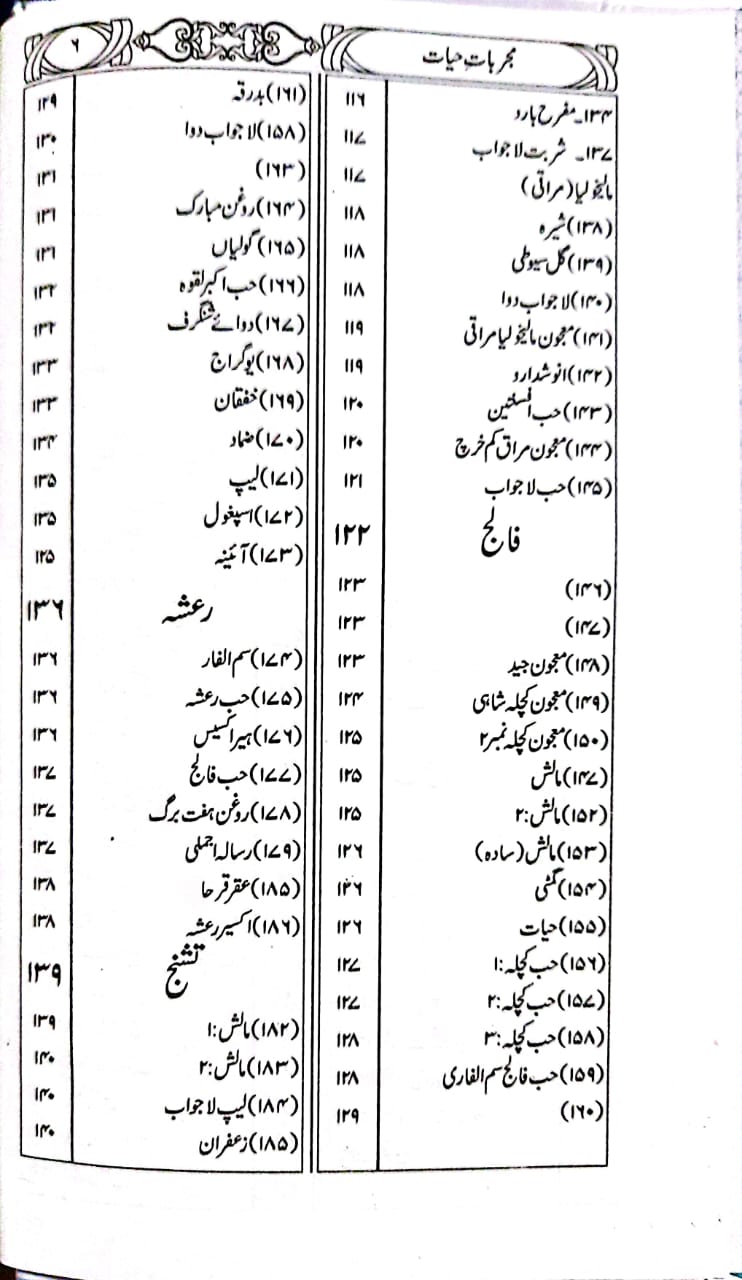 مجربات حیات
۶
۱۳۴۔ مفرح بارد ۱۱۶
۱۳۷۔ شربت لاجواب ۱۱۷
مالیخولیا (مراقی) ۱۱۷
(۱۳۸) شیرہ ۱۱۸
(۱۳۹) گل سیوطی ۱۱۸
(۱۴۰) لاجواب دوا ۱۱۸
(۱۴۱) معجون مالیخولیا مراقی ۱۱۹
(۱۴۲) انوشدارو ۱۱۹
(۱۴۳) حب افسنتین ۱۲۰
(۱۴۴) معجون مراق کم خرچ ۱۲۰
(۱۴۵) حب لاجواب ۱۲۱
فالج ۱۲۲
(۱۴۶) ۱۲۳
(۱۴۷) ۱۲۳
(۱۴۸) معجون جید ۱۲۳
(۱۴۹) معجون کچلہ شاہی ۱۲۴
(۱۵۰) معجون کچلہ نمبر ۲ ۱۲۵
(۱۴۷) مالش ۱۲۵
(۱۵۲) مالش: ۲ ۱۲۵
(۱۵۳) مالش (سادہ) ۱۲۶
(۱۵۴) گٹی ۱۲۶
(۱۵۵) حیات ۱۲۶
(۱۵۶) حب کچلہ: ۱ ۱۲۷
(۱۵۷) حب کچلہ: ۲ ۱۲۷
(۱۵۸) حب کچلہ: ۳ ۱۲۸
(۱۵۹) حب فالج سم الفاری ۱۲۸
(۱۶۰) ۱۲۹
(۱۶۱) بدرقہ ۱۲۹
(۱۵۸) لاجواب دوا ۱۳۰
(۱۶۳) ۱۳۱
(۱۶۴) روغن مبارک ۱۳۱
(۱۶۵) گولیاں ۱۳۱
(۱۶۶) حب اکبر لقوہ ۱۳۲
(۱۶۷) دوائے شنگرف ۱۳۲
(۱۶۸) یوگراج ۱۳۳
(۱۶۹) خفقان ۱۳۳
(۱۷۰) ضماد ۱۳۴
(۱۷۱) لیپ ۱۳۵
(۱۷۲) اسپغول ۱۳۵
(۱۷۳) آئینہ ۱۲۵
رعشہ ۱۳۶
(۱۷۴) سم الفار ۱۳۶
(۱۷۵) حب رعشہ ۱۳۶
(۱۷۶) ہیرا کسیس ۱۳۶
(۱۷۷) حب فالج ۱۳۷
(۱۷۸) روغن ہفت برگ ۱۳۷
(۱۷۹) رسالہ اجملی ۱۳۷
(۱۸۵) عقر قرحا ۱۳۸
(۱۸۶) اکسیر رعشہ ۱۳۸
تشنج ۱۳۹
(۱۸۲) مالش: ۱ ۱۳۹
(۱۸۳) مالش: ۲ ۱۴۰
(۱۸۴) لیپ لاجواب ۱۴۰
(۱۸۵) زعفران ۱۴۰